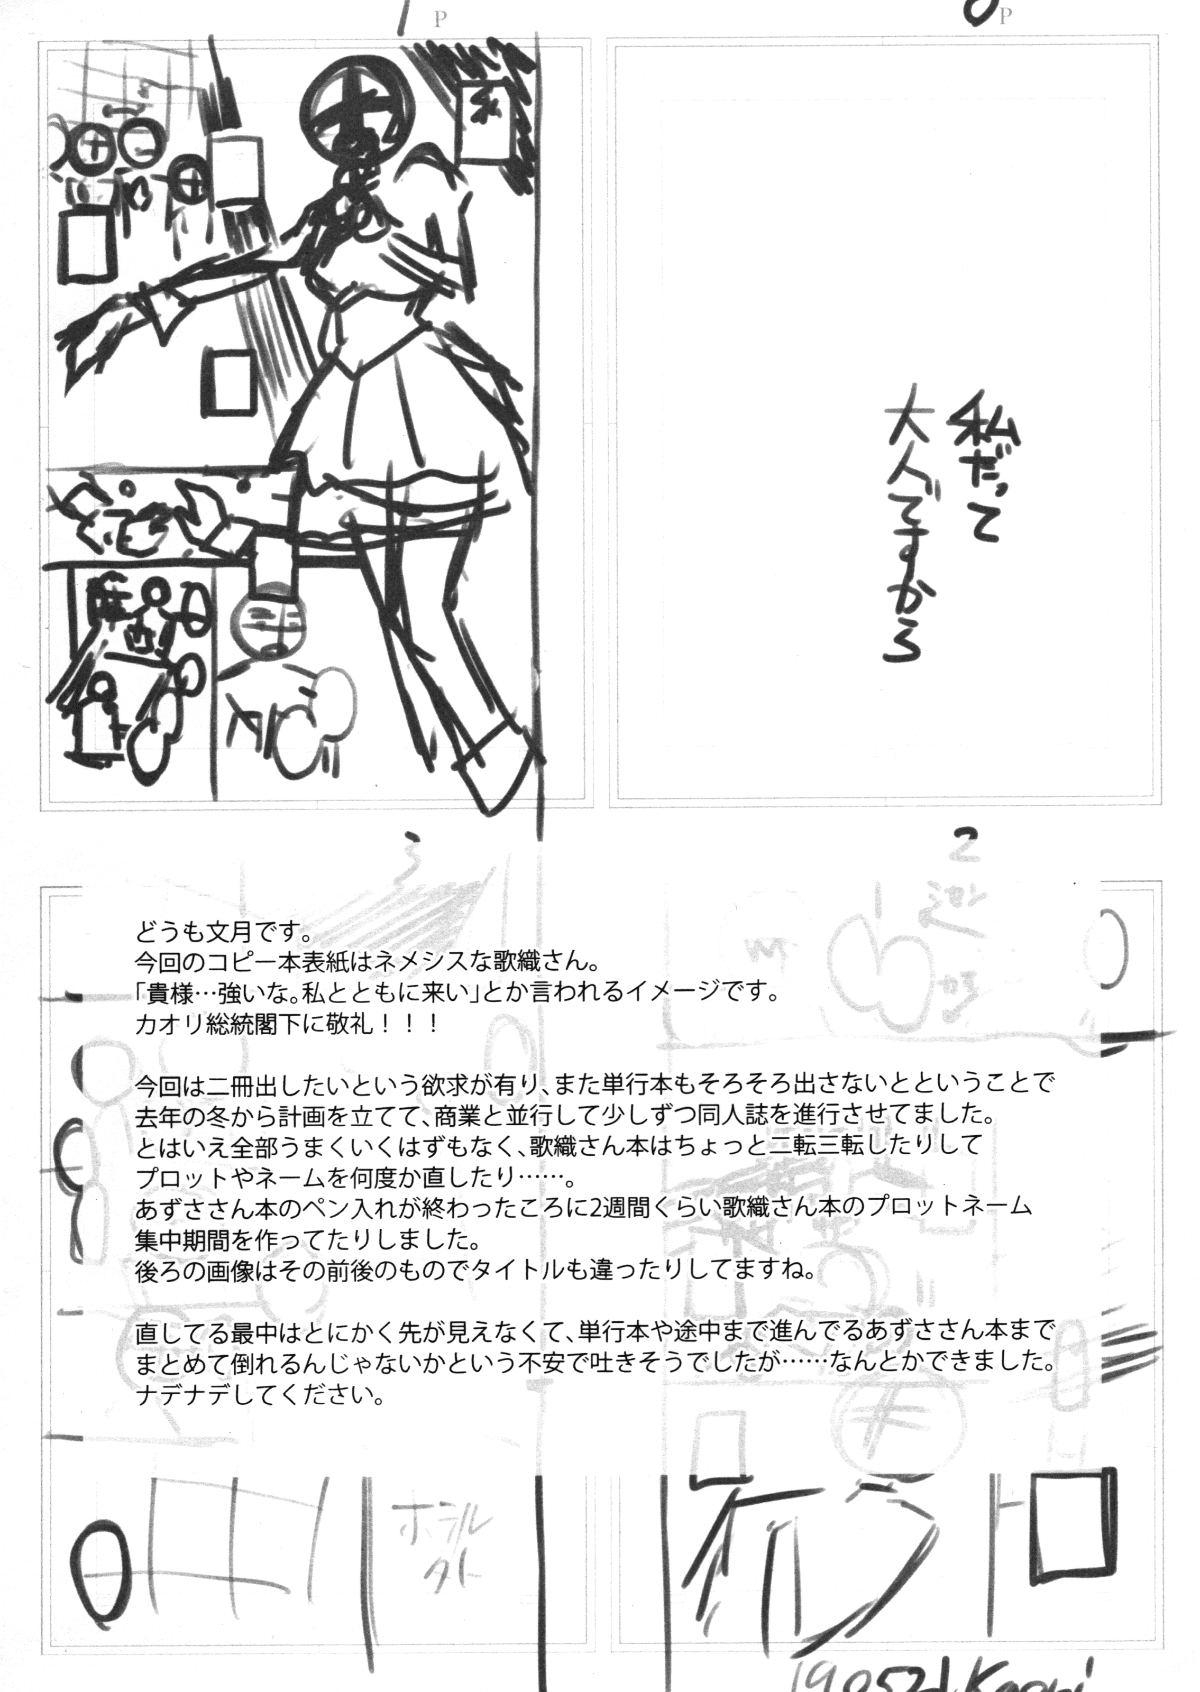 P
P
私だって
大人ですから
3
2
どうも文月です。
今回のコピー本表紙はネメシスな歌織さん。
「貴様…強いな。私とともに来い」とか言われるイメージです。
カオリ総統閣下に敬礼！！！
今回は二冊出したいという欲求が有り、また単行本もそろそろ出さないとということで
去年の冬から計画を立てて、商業と並行して少しずつ同人誌を進行させてました。
とはいえ全部うまくいくはずもなく、歌織さん本はちょっと二転三転したりして
プロットやネームを何度か直したり……。
あずささん本のペン入れが終わったころに2週間くらい歌織さん本のプロットネーム
集中期間を作ってたりしました。
後ろの画像はその前後のものでタイトルも違ったりしてますね。
直してる最中はとにかく先が見えなくて、単行本や途中まで進んでるあずささん本まで
まとめて倒れるんじゃないかという不安で吐きそうでしたが……なんとかできました。
ナデナデしてください。